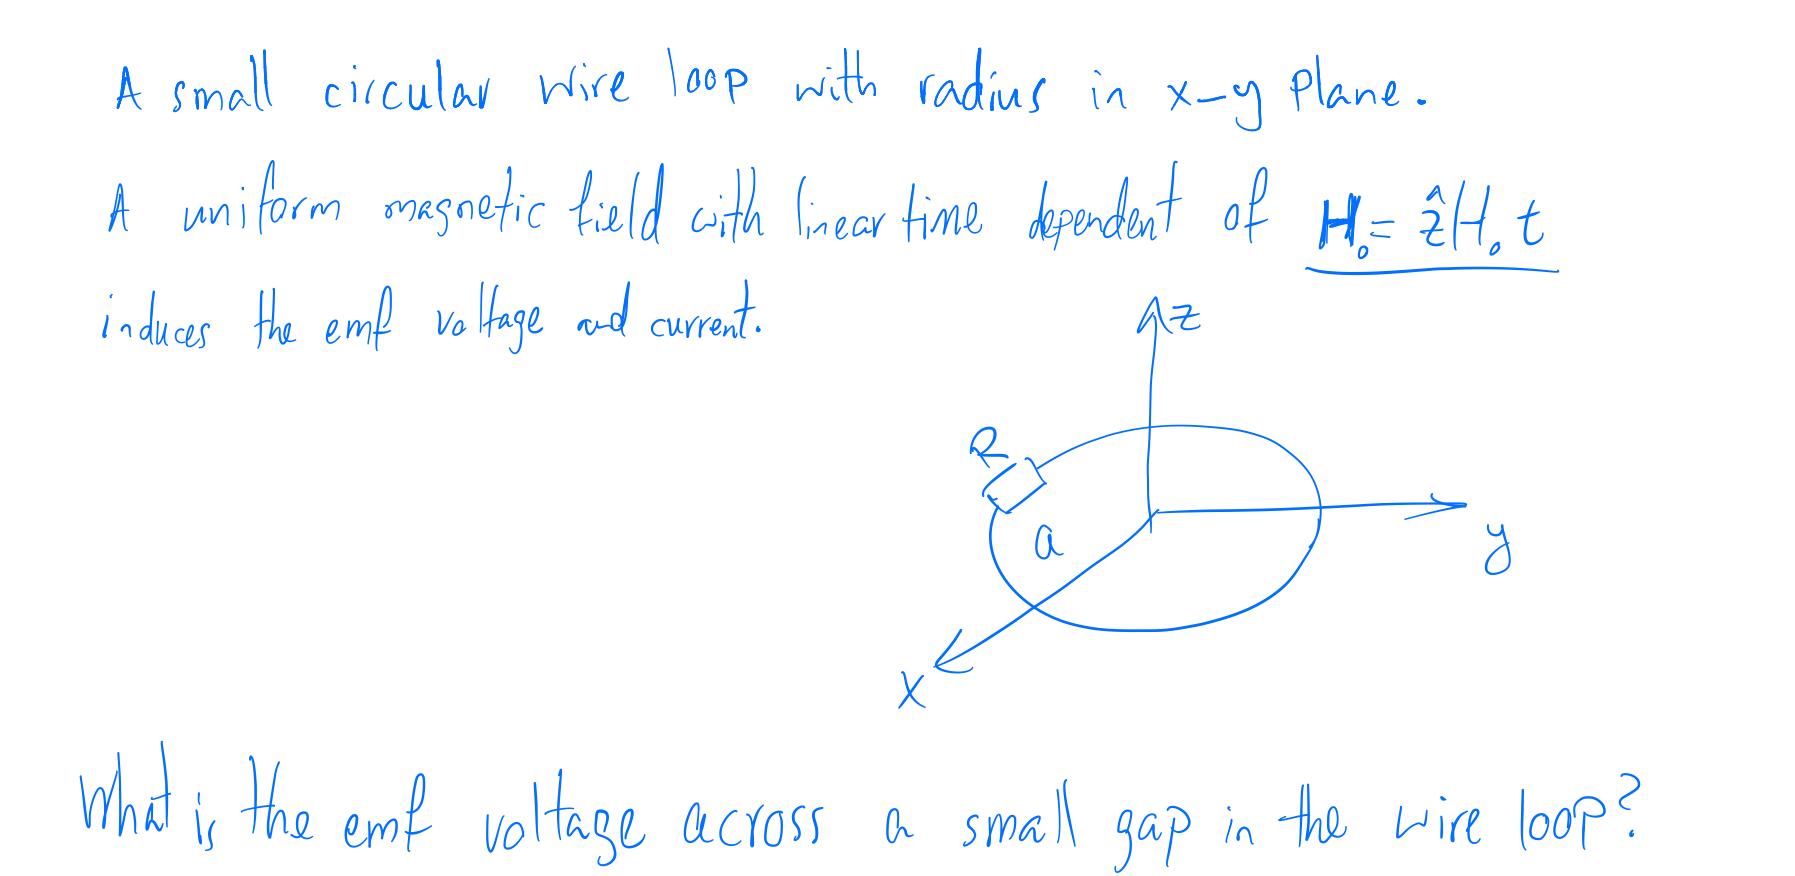 A small circular wire loop with radius in x-y plane.
A uniform magnetic field with linear time dependent of H₀ = ẑH₀ t
induces the emf voltage and current.
z
R
a
y
x
What is the emf voltage across a small gap in the wire loop?